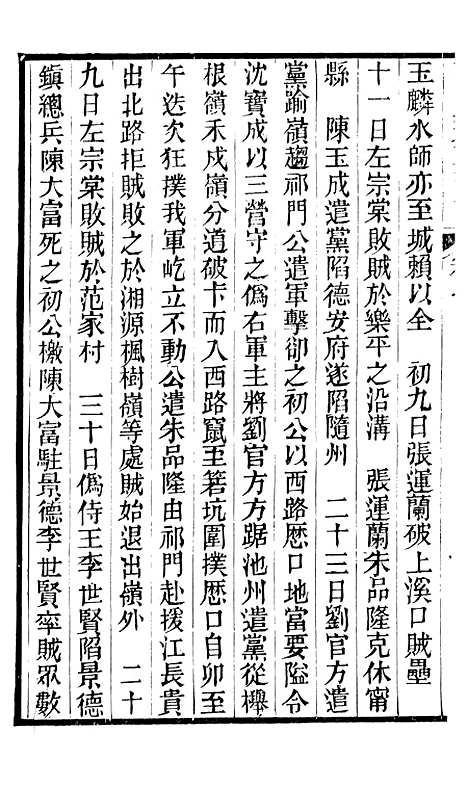 玉麟水師亦至城賴以全　初九日張運蘭破上溪口賊壘
十一日左宗棠敗賊於樂平之沿溝　張運蘭朱品隆克休甯
縣　陳玉成遣黨陷德安府遂陷隨州　二十三日劉官方遣
黨踰嶺趨祁門公遣軍擊卻之初公以西路厯口地當要隘令
沈寶成以三營守之僞右軍主將劉官方方踞池州遣黨從櫸
根嶺禾戍嶺分道破卡而入西路竄至箬坑圍撲厯口自卯至
午迭次狂撲我軍屹立不動公遣朱品隆由祁門赴援江長貴
出北路拒賊敗之於湘源楓樹嶺等處賊始退出嶺外　二十
九日左宗棠敗賊於范家村　三十日僞侍王李世賢陷景德
鎮總兵陳大富死之初公檄陳大富駐景德李世賢率賊眾數